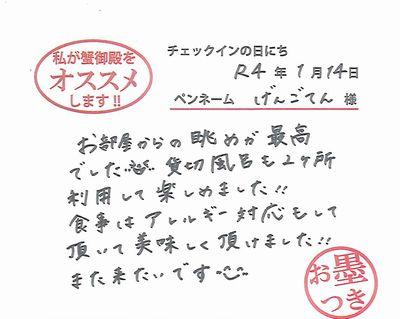 私が蟹御殿を
オススメ
します!!
チェックインの日にち
R4 年 1 月 14 日
ペンネーム げんごてん 様
お部屋からの眺めが最高
でした 貸切風呂も2ヶ所
利用して楽しめました!!
食事はアレルギー対応もして
頂いて美味しく頂けました!!
また来たいです
お墨
つき